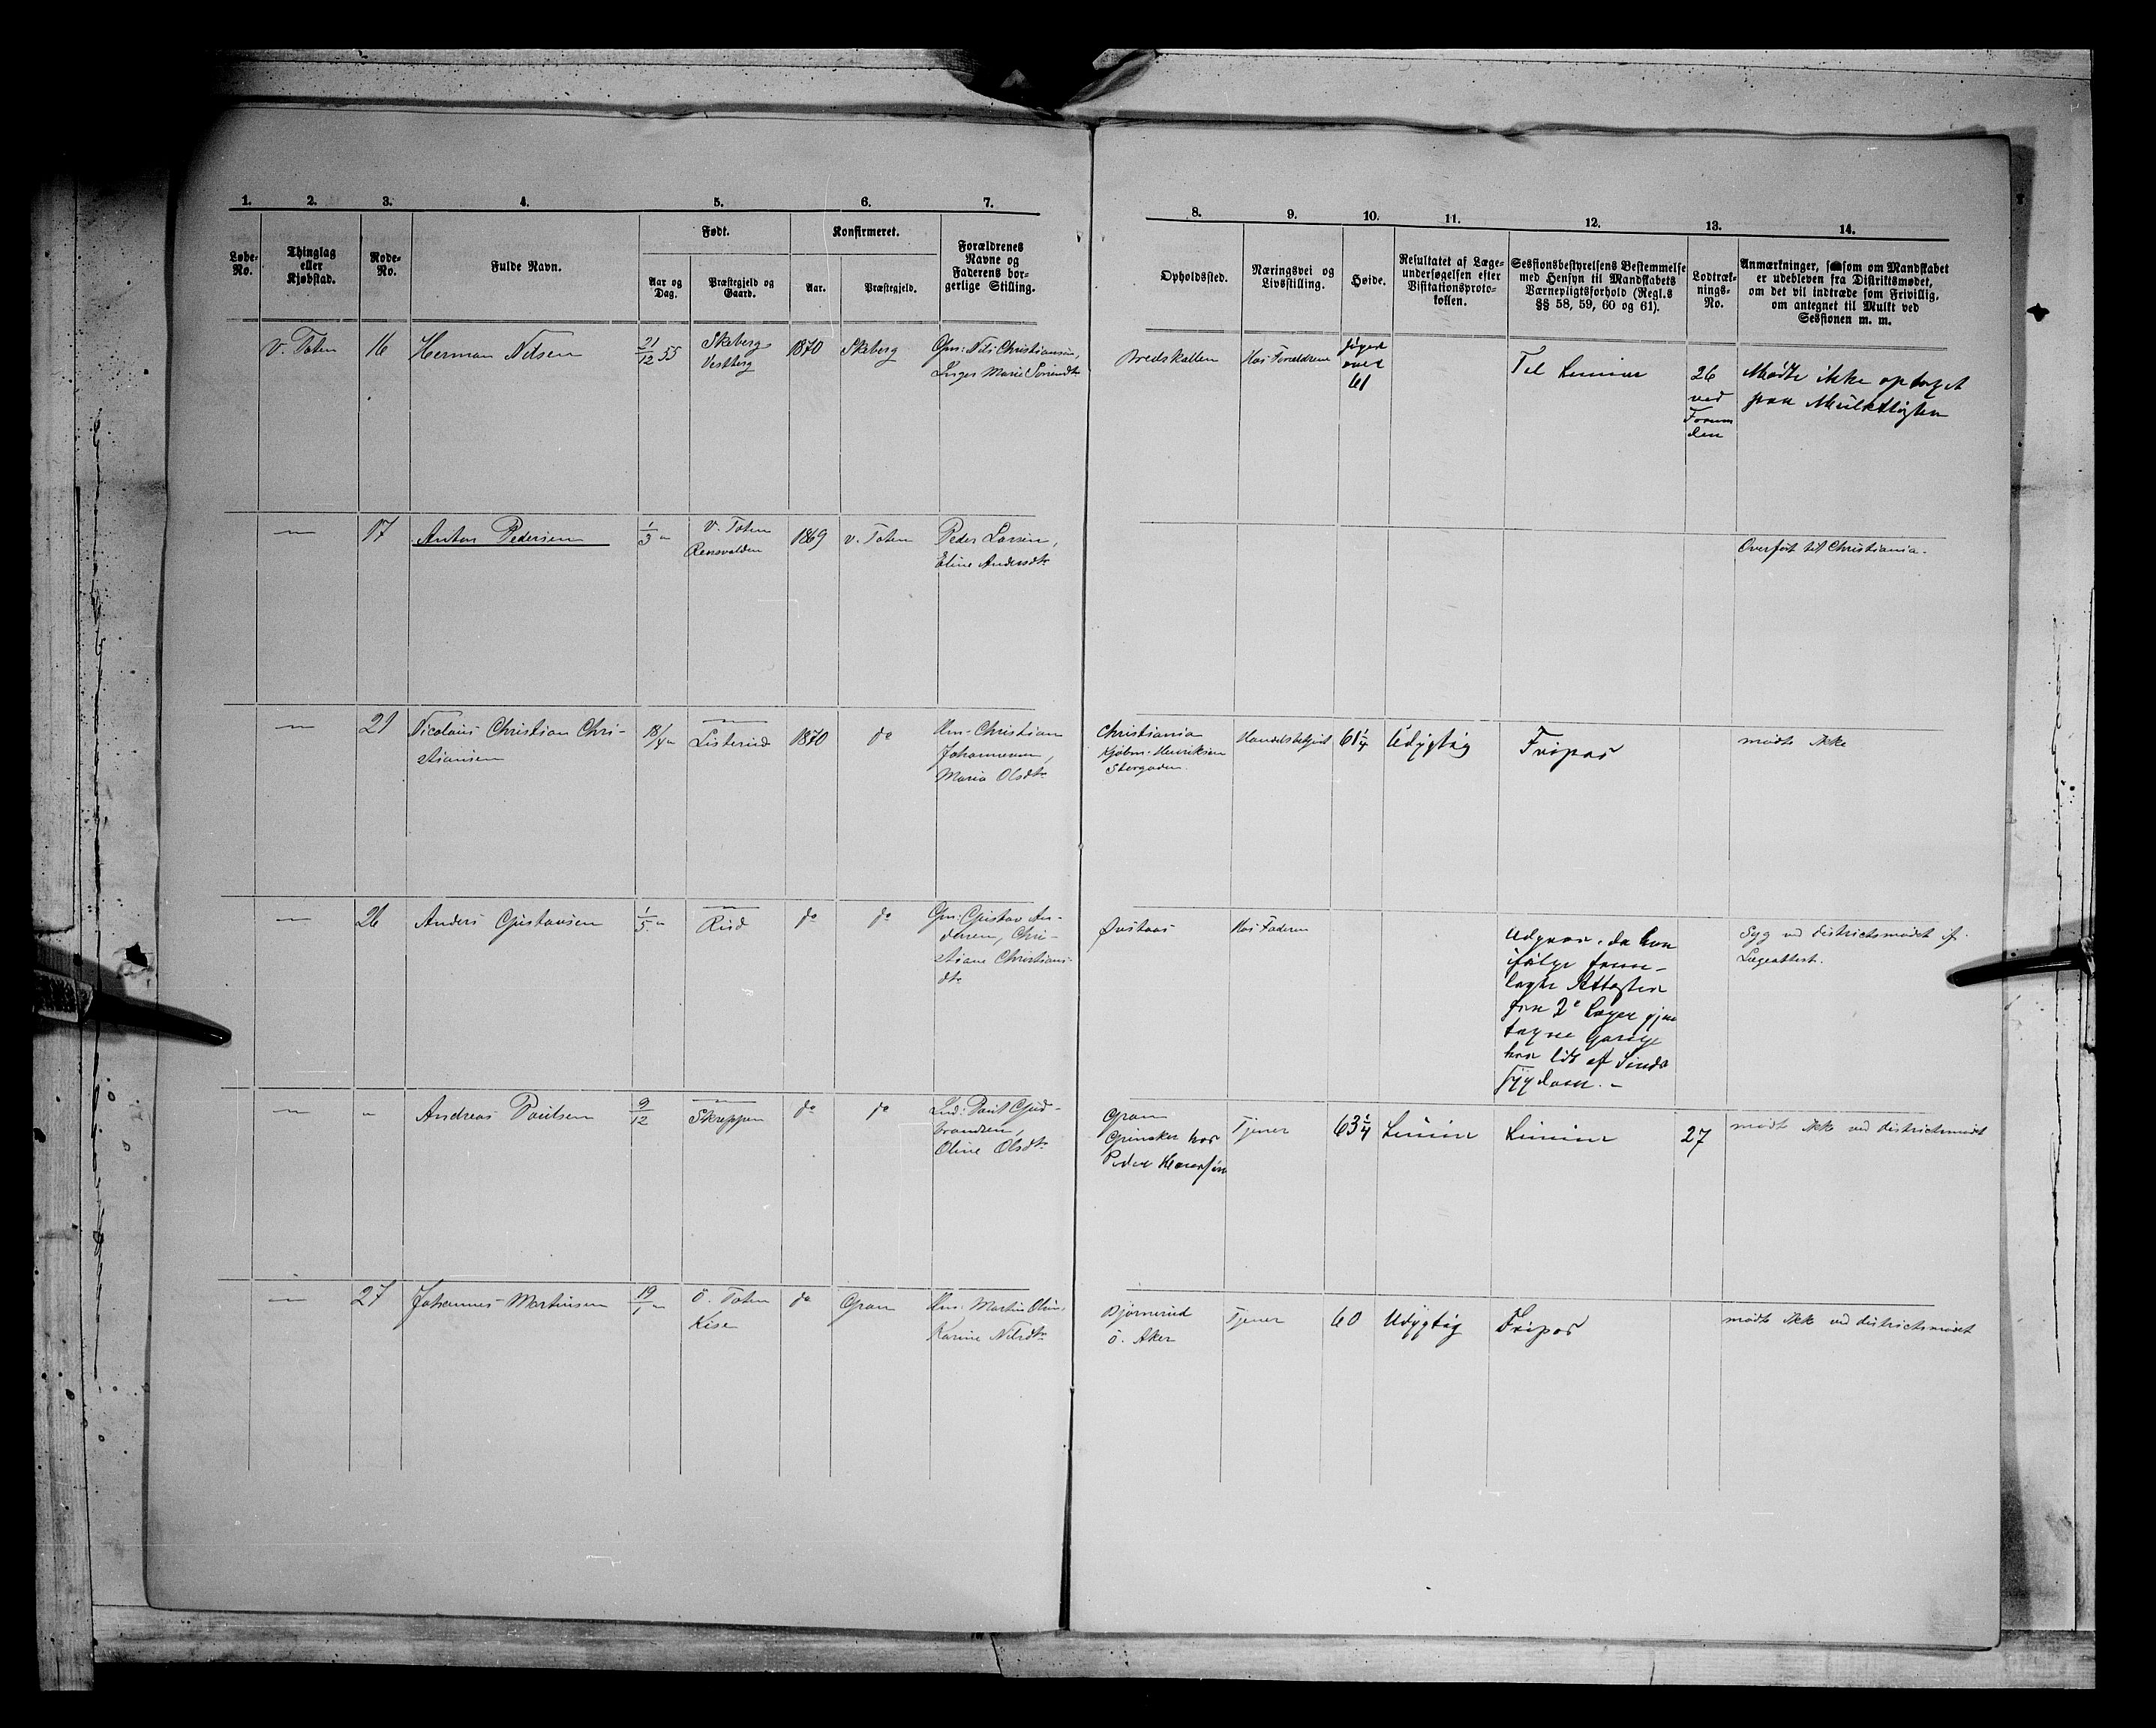 1. 2. 3. 4. 5. 6. 7.
Løbe-No. Thinglag eller Kjøbstad. Rode-No. Fulde Navn. Født. Aar og Dag. Præstegjeld og Gaard. Konfirmeret. Aar. Præstegjeld. Forældrenes Navne og Faderens borgerlige Stilling.
8. 9. 10. 11. 12. 13. 14.
Opholdssted. Næringsvei og Livsstilling. Høide. Resultatet af Lægeundersøgelsen efter Visitationsprotokollen. Sessionsbestyrelsens Bestemmelse med Hensyn til Mandskabets Værnepligtsforhold (Regl.s §§ 58, 59, 60 og 61). Lodtræknings-No. Anmærkninger, saasom om Mandskabet er udebleven fra Distriktsmødet, om det vil indtræde som Frivillig, om antegnet til Mulkt ved Sessionen m. m.
V. Toten 16 Herman Nilsen 21/12 55 Skeberg Vestberg 1870 Skeberg Gm: Nils Christiansen, Inger Marie
Bredskallen Hos Forældrene over 61 Til Linien 26 ved Mødte ikke optaget paa Mulktlisten
— 17 Anton Pedersen 1/3 " V. Toten Rensvolden 1869 V. Toten Peder Larsen, Eline Andersdtr
Overført til Christiania.
— 21 Nicolaus Christian Christiansen 18/4 " — Listerud 1870 do Hm. Christian Johannesen, Maria Olsdtr
Christiania Kjøbm. Henriksen Storgaden. Handelsbetjent 61 1/4 Udygtig Fripas mødte ikke
— 26 Anders Gustavsen 1/5 " — Rud do do Gm: Gustav Andersen, Christiane Christiansdtr
Hos Faderen
ifølge fremlagte Attester fra 2de Læger gjentagne Gange har lidt af Sindssygdom. —
Syg ved districtsmødet if. Lægeattest.
— " Andreas Paulsen 9/12 — Skreppen do do Ind: Paul Gudbrandsen, Oline Olsdtr
Gran hos Peder Tjener 63 1/4 Linien Linien 27 mødte ikke ved districtsmødet
— 27 Johannes Martinsen 19/1 " Ö. Toten Kise do Gran Hm. Martin Karine Nilsdtr
Bjørnerud Ö. Aker Tjener 60 Udygtig Fripas mødte ikke ved districtsmødet